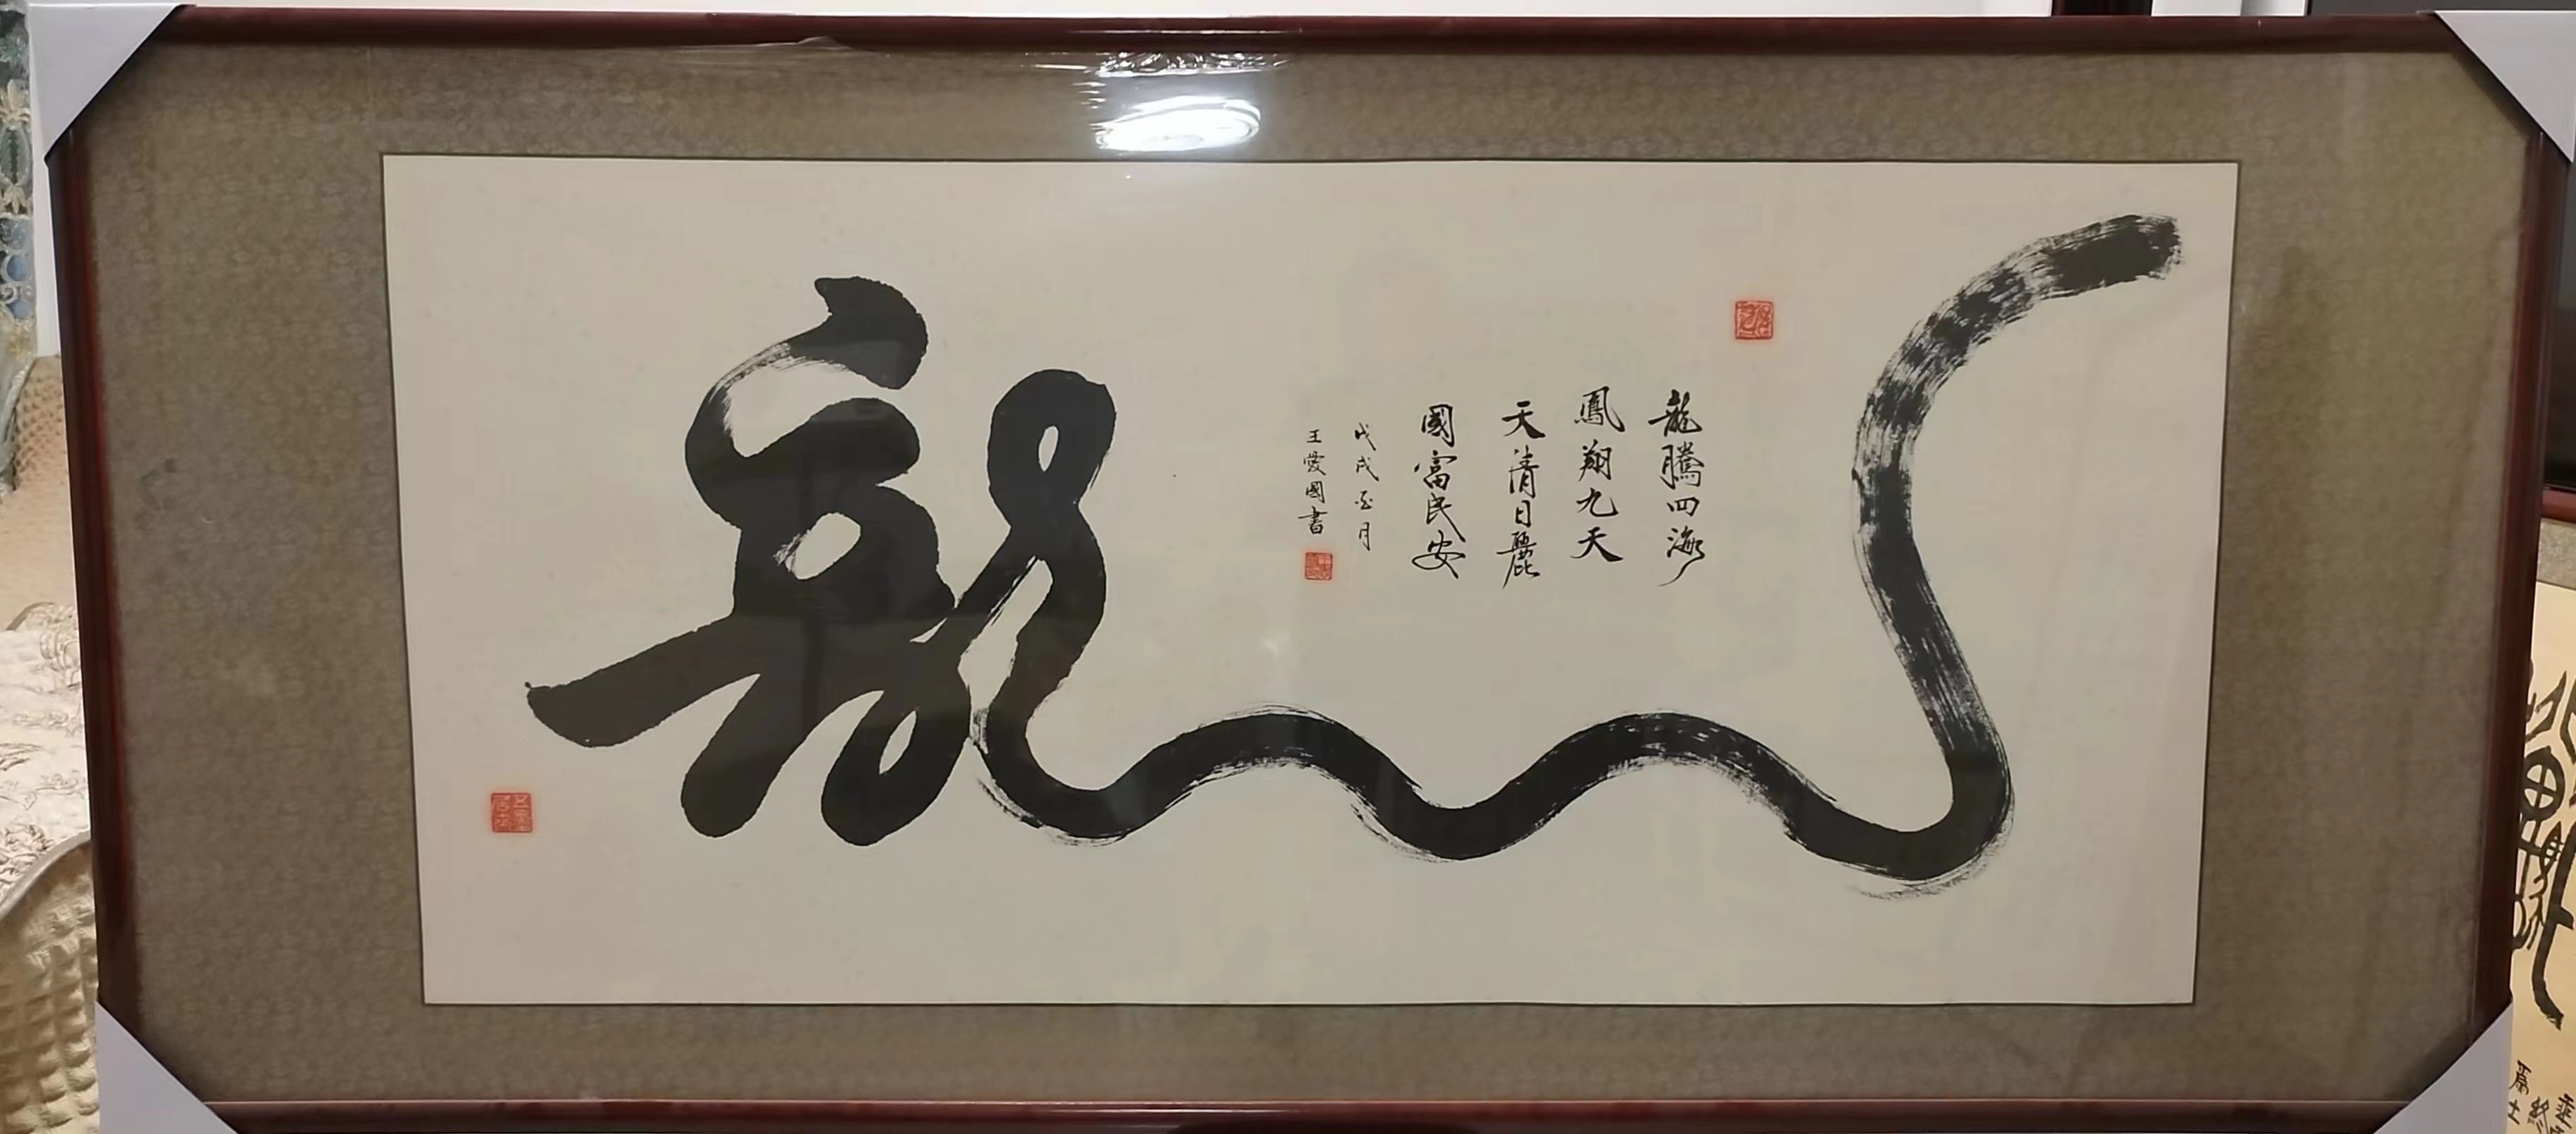 龍
龍騰四海
鳳翔九天
天清日麗
國富民安
戊戌 月
王愛國書